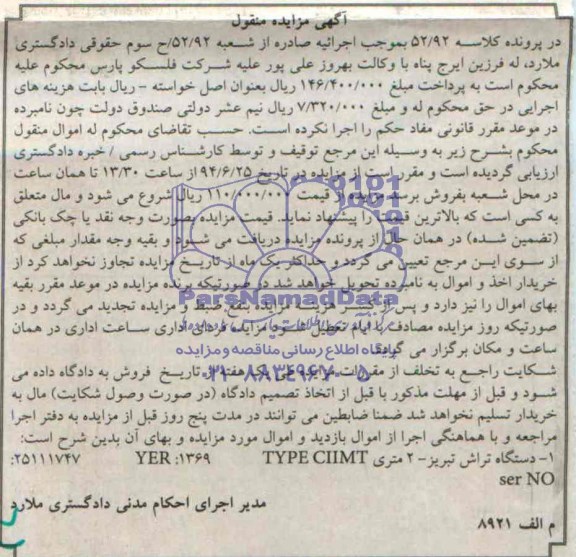 آگهی مزایده منقول
در پرونده کلاسه ۵۲/۹۲ بموجب اجرائیه صادره از شعبه ۵۲/۹۲/ح سوم حقوقی دادگستری
ملارد، له فرزین ایرج پناه با وکالت بهروز علی پور علیه شرکت فلسکو پارس محکوم علیه
محکوم است به پرداخت مبلغ ۱۴۶/۴۰۰/۰۰۰ ریال بعنوان اصل خواسته – ریال بابت هزینه های
اجرایی در حق محکوم له و مبلغ ۷/۳۲۰/۰۰۰ ریال نیم عشر دولتی صندوق دولت چون نامبرده
در موعد مقرر قانونی مفاد حکم را اجرا نکرده است. حسب تقاضای محکوم له اموال منقول
محکوم بشرح زیر به وسیله این مرجع توقیف و توسط کارشناس رسمی / خبره دادگستری
ارزیابی گردیده است و مقرر است از مزایده در تاریخ ۹۴/۶/۲۵ از ساعت ۱۳/۳۰ تا همان ساعت
در محل شعبه بفروش برسد مزایده از قیمت ۱۱۰/۰۰۰/۰۰۰ ریال شروع می شود و مال متعلق
به کسی است که بالاترین قیمت را پیشنهاد نماید. قیمت مزایده بصورت وجه نقد یا چک بانکی
(تضمین شده) در همان حال از پرونده مزایده دریافت می شود و بقیه وجه مقدار مبلغی که
از سوی این مرجع تعیین می گردد و حداکثر یک ماه از تاریخ مزایده تجاوز نخواهد کرد از
خریدار اخذ و اموال به نامبرده تحویل خواهد شد در صورتیکه برنده مزایده در موعد مقرر بقیه
بهای اموال را نیز دارد و پس از کسر هزینه مزایده بنفع ضبط و مزایده تجدید می گردد و در
صورتیکه روز مزایده مصادف با ایام تعطیل شود مزایده فردای اداری ساعت اداری در همان
ساعت و مکان برگزار می گردد.
شکایت راجع به تخلف از مقررات مزایده ظرف یک هفته از تاریخ فروش به دادگاه داده می
شود و قبل از مهلت مذکور یا قبل از اتخاذ تصمیم دادگاه (در صورت وصول شکایت) مال به
خریدار تسلیم نخواهد شد ضمنا ضابطین می توانند در مدت پنج روز قبل از مزایده به دفتر اجرا
مراجعه و با هماهنگی اجرا از اموال بازدید و اموال مورد مزایده و بهای آن بدین شرح است:
۱- دستگاه تراش تبریز- ۲ متری TYPE CIIMT YER :۱۳۶۹ :۲۵۱۱۱۷۴۷
ser NO
مدیر اجرای احکام مدنی دادگستری ملارد
م الف ۸۹۲۱
ParsNamadData
پایگاه اطلاع رسانی مناقصه و مزایده
۰۲۱-۸۸۳۴۹۶۷۰-۵